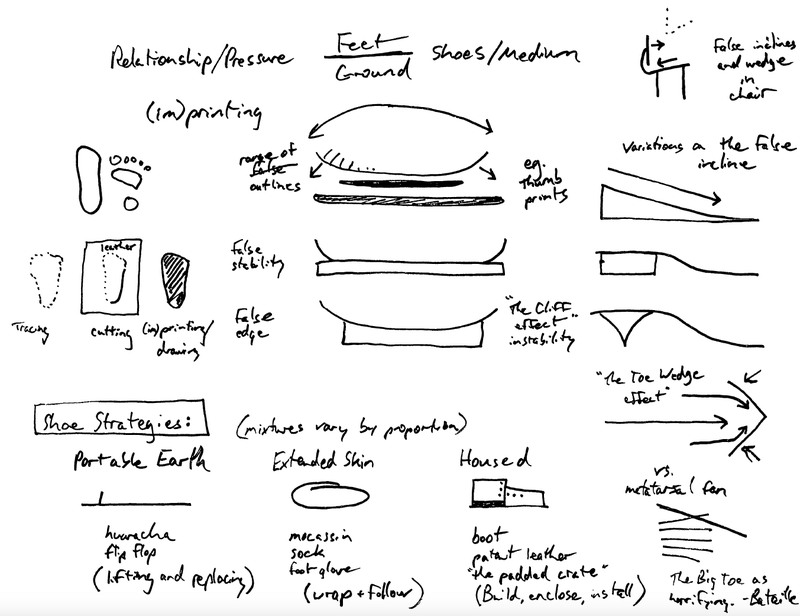 Relationship/Pressure
Feet
Ground
Shoes/Medium
False inclines
and wedge
in
chair
(im)printing
range of
false
outlines
eg.
thumb
prints
Variations on the False
incline
False
stability
leather
Tracing
cutting
(im)printing/
drawing
False
edge
"The Cliff
effect"
instability
"The Toe Wedge
effect"
Shoe Strategies:
(mixtures vary by proportion)
Portable Earth
huaracha
flip flop
(lifting and replacing)
Extended Skin
mocassin
sock
foot glove
(wrap + follow)
Housed
boot
patent leather
"the padded crate"
(Build, enclose, install)
vs.
metatarsal fan
The Big Toe as
horrifying. -Bataille